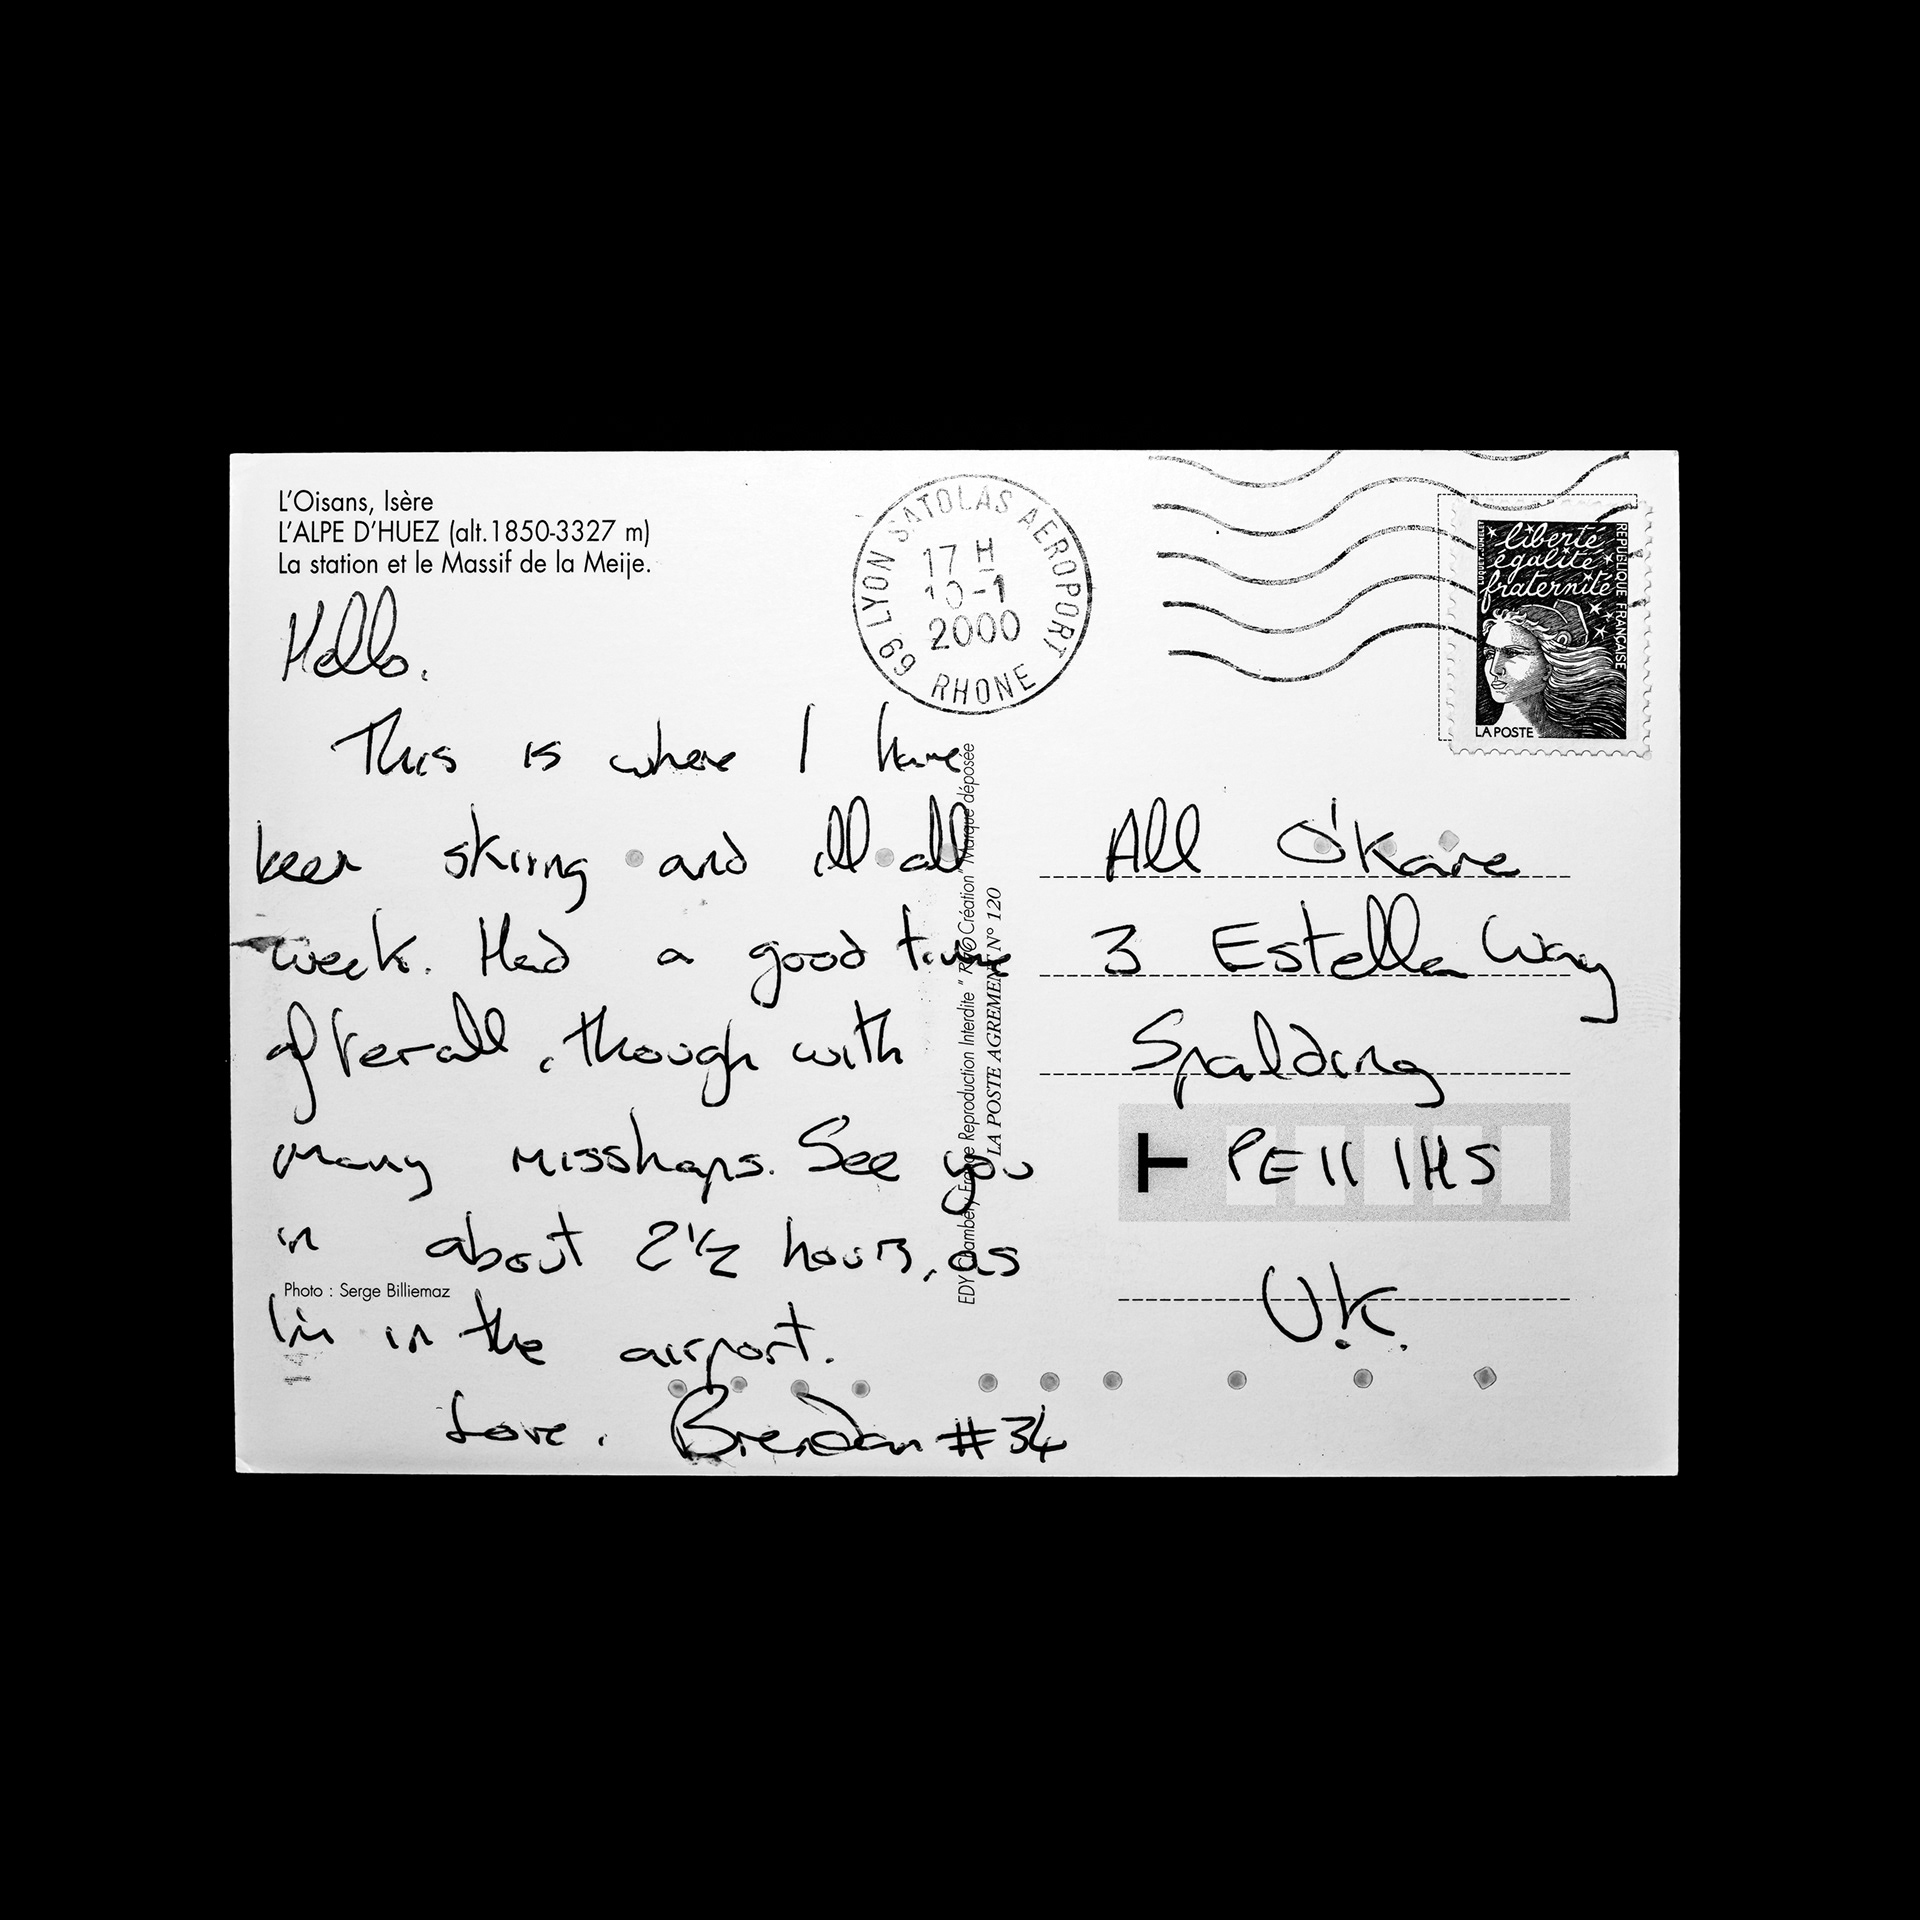 L'Oisans, Isère
L'ALPE D'HUEZ (alt.1850-3327 m)
La station et le Massif de la Meije.
Hello.
This is where I have
been skiing and ill all
week. Had a good time
afterall, though with
many misshaps. See you
in about 2½ hours, as
Photo : Serge Billiemaz
I'm in the airport.
Love, Brendan #34
69 LYON SATOLAS AEROPORT
17 H
10-1
2000
RHONE
EDY Chambéry France Reproduction Interdite " Création" Marque déposée
LA POSTE AGREMENT N° 120
liberté
égalité
fraternité
REPUBLIQUE FRANÇAISE
LA POSTE
All O'Kane
3 Estella Way
Spalding
PE11 1HS
U.K.